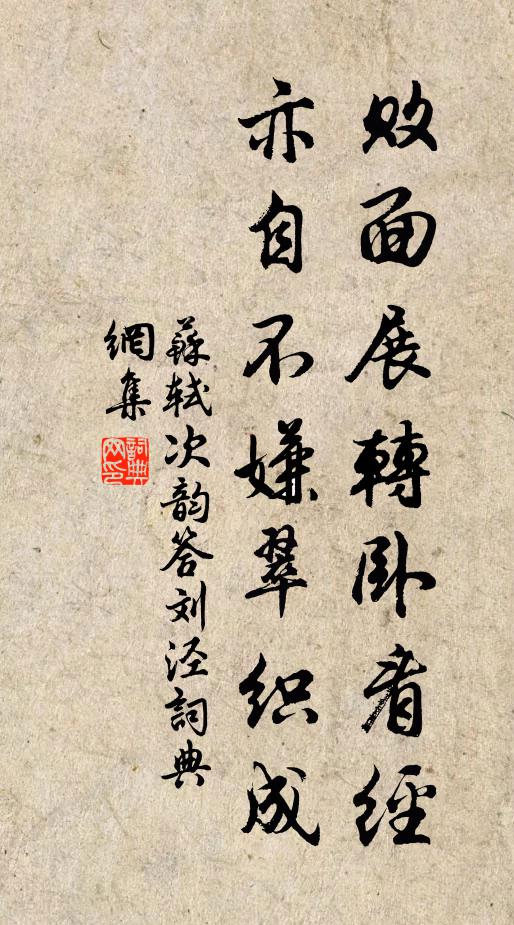 败面展轉卧看經
亦自不嫌翠织成
蘇轼次韵答刘泾詞典
網集
詞典网印